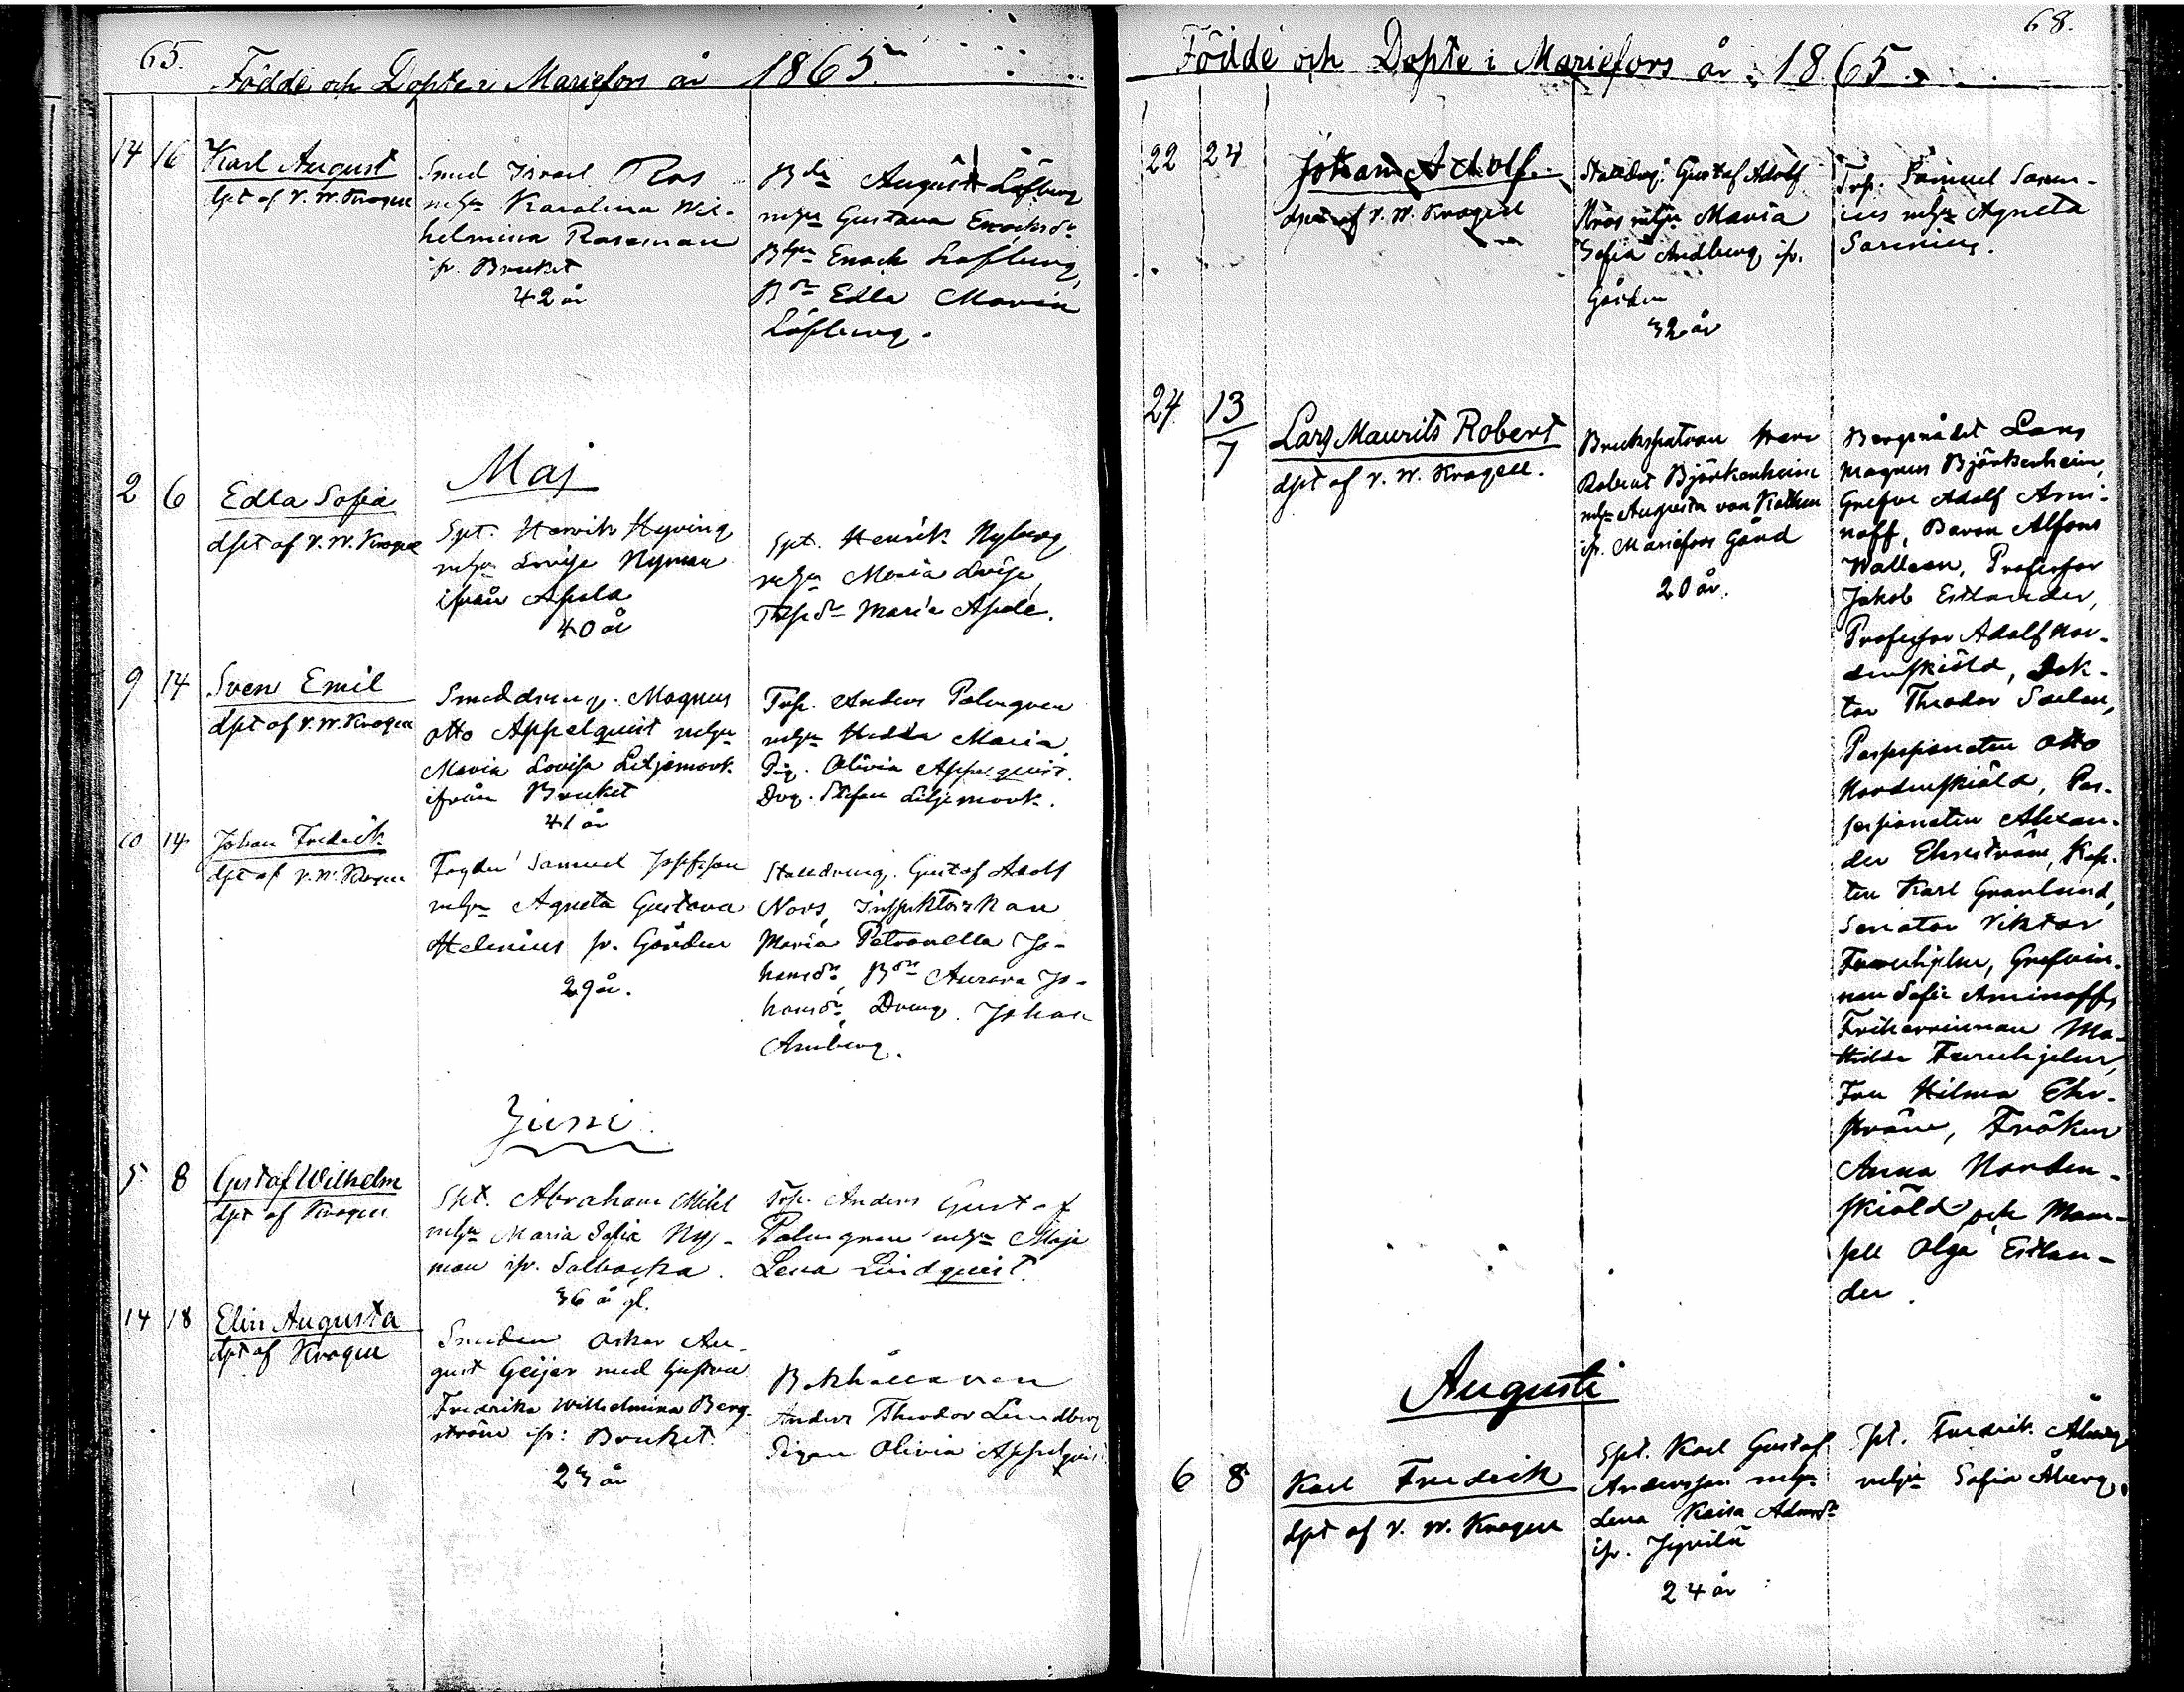 65.
Födde och Döpte i Mariefors år 1865.
14 16 Karl August
dpt af V. W. Krogell
Smed Israel Ros
m hu Karolina Wil-
helmina Roseman
ifr. Bruket
42 år
August Löfberg
m hu Gustava Enochsdr
Enock Löfberg,
Edla Maria
Löfberg.
Maj
2 6 Edla Sofia
dpt af V. W. Krogell
Spt. Henrik Hyving
m hu Lovisa Nyman
ifrån Apola
40 år
Spt. Henrik Nyberg
m hu Maria Lovisa,
Maria Apola.
9 14 Sven Emil
dpt af V. W. Krogell
Smeddreng. Magnus
Otto Appelquist m hu
Maria Lovisa Liljemark
ifrån Bruket
41 år
Trp. Anders Palmgren
m hu Hedda Maria,
Pig. Olivia Appelquist.
Drg. Stefan Liljemark.
10 14 Johan Fredrik
dpt af V. W. Krogell
Fogden Samuel Josefsson
m hu Agneta Gustava
Helenius fr. Gården
29 år.
Stalldreng. Gustaf Adolf
Nors, Inspektorskan
Maria Petronella Jo-
hansdr, Aurora Jo-
hansdr, Dreng. Johan
Amberg.
Juni
5 8 Gustaf Wilhelm
dpt af Krogell
Spt. Abraham Mikel
m hu Maria Sofia Ny-
man ifr. Solbacka.
36 år gl.
Trp. Anders Gustaf
Palmgren m hu Maja
Lena Lindquist.
14 18 Elin Augusta
dpt af Krogell
Smeden Oskar Au-
gust Geijer med hustru
Fredrika Wilhelmina Berg-
ström ifr: Bruket.
23 år
Bokhållaren
Anders Theodor Lundberg
Pigan Olivia Appelquist
68.
Födde och Döpte i Mariefors år 1865.
22 24 Johan Adolf.
dpt af V. W. Krogell
Stalldrg. Gustaf Adolf
Nors m hu Maria
Sofia Andberg ifr.
Gården
32 år
Trp. Samuel Saren-
ius m hu Agneta
Sarenius.
24 13/7 Lars Maurits Robert
dpt af V. W. Krogell.
Brukspatron Herr
Robert Björkenheim
m hu Augusta von Kothen
ifr. Mariefors Gård
20 år.
Bergsrådet Lars
Magnus Björkenheim,
Grefve Adolf Ami-
noff, Baron Alfons
Walleen, Professor
Jakob Estlander,
Professor Adolf Nor-
denskiöld, Dok-
tor Theodor Saelan,
Possessionaten Otto
Nordenskiöld, Pos-
sessionaten Alexan-
der Ehrström, Kap-
ten Karl Granlund,
Senator Viktor
Furuhjelm, Grefvin-
nan Sofie Aminoff,
Friherrinnan Ma-
thilda Furuhjelm,
Fru Hilma Ehr-
ström, Fröken
Anna Norden-
skiöld och Mam-
sell Olga Estlan-
der.
Augusti
6 8 Karl Fredrik
dpt af V. W. Krogell
Spt. Karl Gustaf
Andersson m hu
Lena Kaisa Adamsdr
ifr. Jyvilä
24 år
Spt. Fredrik Åberg
m hu Sofia Åberg.